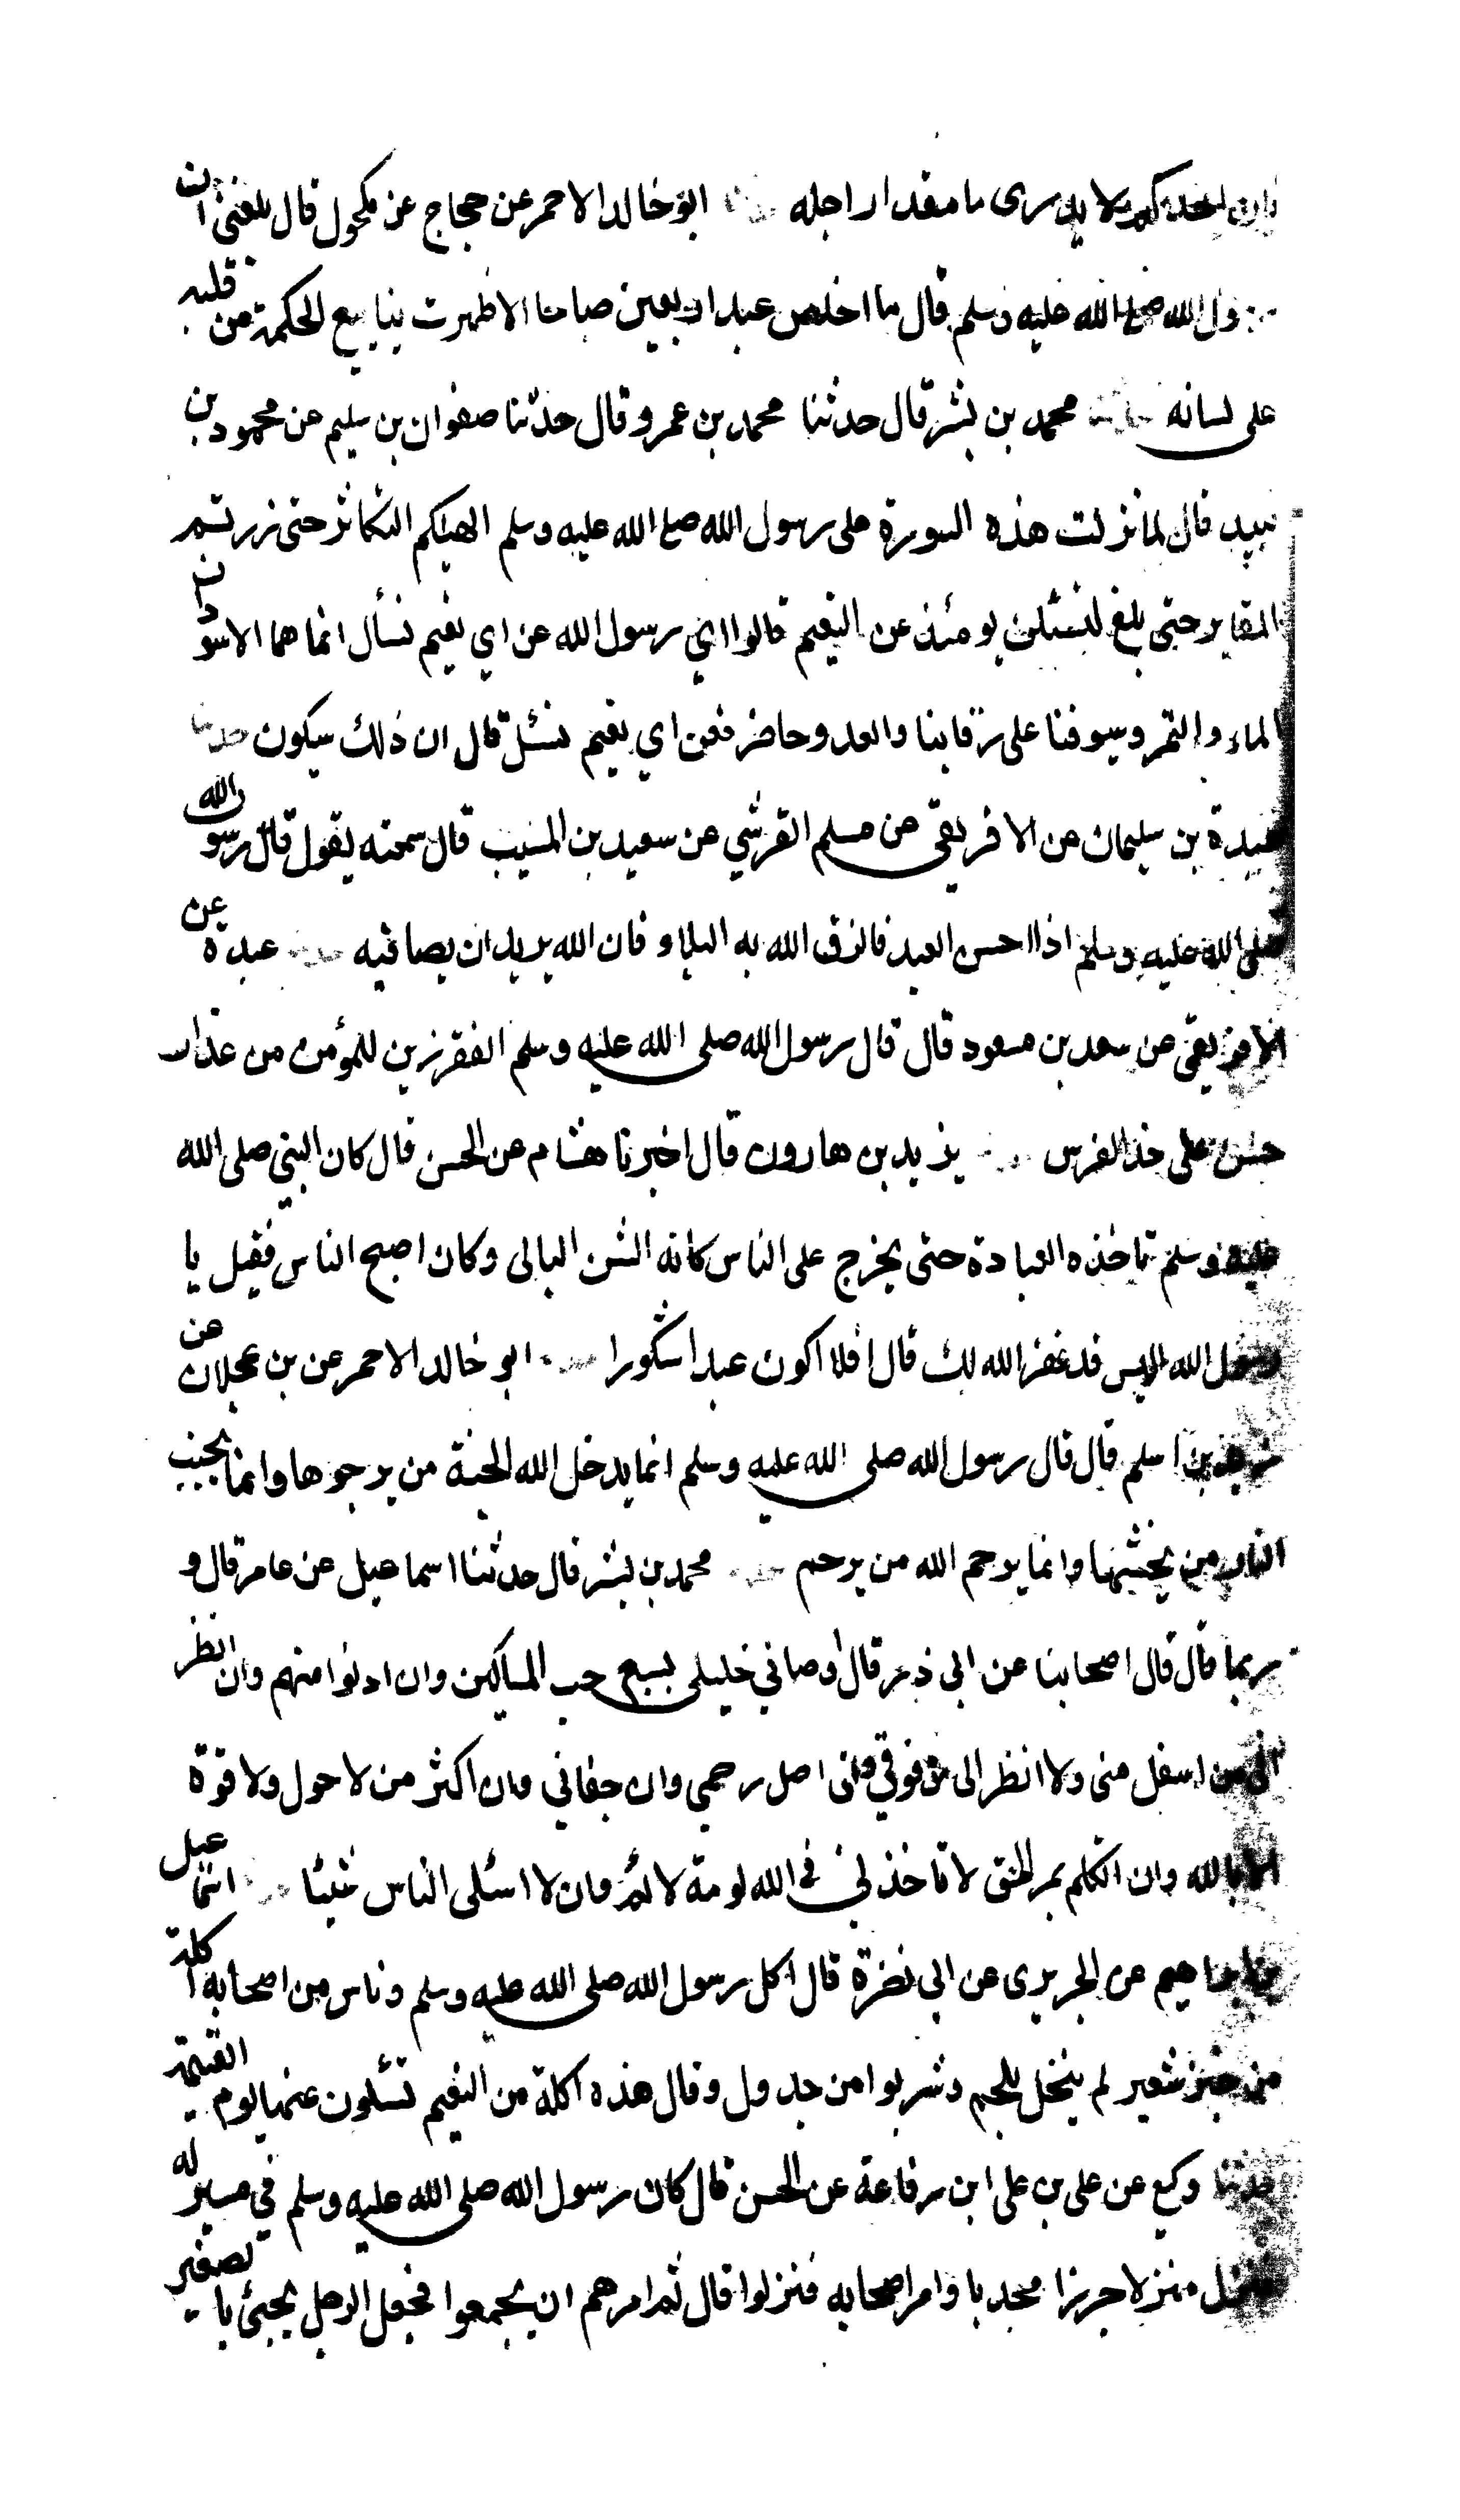 فان احدكم لا يدرى ما مقدار اجله حدثنا ابو خالد الاحمر عن حجاج عن مكحول قال بلغنى ان
رسول الله صلى الله عليه وسلم قال ما اخلص عبد اربعين صباحا الا ظهرت ينابيع الحكمة من قلبه
على لسانه حدثنا محمد بن بشر قال حدثنا محمد بن عمرو قال حدثنا صفوان بن سليم عن محمود بن
لبيد قال لما نزلت هذه السورة على رسول الله صلع الله عليه وسلم الهيكم التكاثر حتى زرتم
المقابر حتى بلغ لتسئلن يومئذ عن النعيم قالوا اي رسول الله عن اي نعيم نسأل انما هما الاسودان
الماء والتمر وسيوفنا على رقابنا والعدو حاضر فعن اي نعيم نسئل قال ان ذلك سيكون حدثنا
عبدة بن سليمان عن الافريقى عن مسلم القرشي عن سعيد بن المسيب قال سمعته يقول قال رسول الله
صلى الله عليه وسلم اذا احسن العبد فالزق الله به البلاء فان الله يريد ان يصافيه حدثنا عبدة عن
الافريقى عن سعد بن مسعود قال قال رسول الله صلى الله عليه وسلم الفقر زين للمؤمن من عذار
حسن على خد الفرس حدثنا يزيد بن هارون قال اخبرنا هشام عن الحسن قال كان النبي صلى الله
عليه وسلم تاخذه العبادة حتى يخرج على الناس كانه الشن البالى وكان اصبح الناس فقيل يا
رسول الله اليس قد غفر الله لك قال افلا اكون عبدا شكورا حدثنا ابو خالد الاحمر عن بن عجلان عن
زيد بن اسلم قال قال رسول الله صلى الله عليه وسلم انما يدخل الله الجنة من يرجوها وانما يجنب
النار من يخشيها وانما يرحم الله من يرحم حدثنا محمد بن بشر قال حدثنا اسماعيل عن عامر قال و
ربما قال قال اصحابنا عن ابى ذر قال اوصاني خليلى بسبع حب المساكين وان ادنوا منهم وان انظر
الى من اسفل منى ولا انظر الى من فوقي وان اصل رحمى وان جفاني وان اكثر من لا حول ولا قوة
الا بالله وان اتكلم بمر الحق لا تاخذني في الله لومة لائم وان لا اسئلى الناس شيئا حدثنا اسماعيل
بن ابراهيم عن الجريرى عن ابى نضرة قال اكل رسول الله صلى الله عليه وسلم وناس من اصحابه اكلة
من خبز شعير لم ينخل بلحم وشربوا من جدول وقال هذه اكلة من النعيم تسئلون عنها يوم القيمة
حدثنا وكيع عن على بن على ابن رفاعة عن الحسن قال كان رسول الله صلى الله عليه وسلم في مسير له
فنزل منزلا جرزا مجدبا وامر اصحابه فنزلوا قال ثم امرهم ان يجمعوا فجعل الرجل يجئ بالصغير